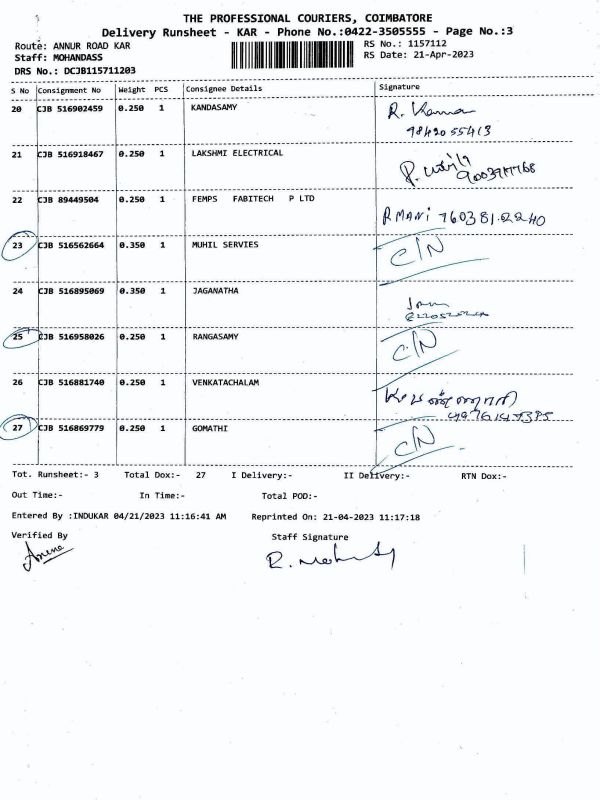 THE PROFESSIONAL COURIERS, COIMBATORE
Delivery Runsheet - KAR - Phone No.:0422-3505555 - Page No.:3
Route: ANNUR ROAD KAR
RS No.: 1157112
Staff: MOHANDASS
RS Date: 21-Apr-2023
DRS No.: DCJB115711203
S No Consignment No Weight PCS Consignee Details Signature
20 CJB 516902459 0.250 1 KANDASAMY R. Kumar
9842055413
21 CJB 516918467 0.250 1 LAKSHMI ELECTRICAL
22 CJB 89449504 0.250 1 FEMPS FABITECH P LTD
R MANI 7603812240
23 CJB 516562664 0.350 1 MUHIL SERVIES C/N
24 CJB 516895069 0.350 1 JAGANATHA
25 CJB 516958026 0.250 1 RANGASAMY C/N
26 CJB 516881740 0.250 1 VENKATACHALAM
27 CJB 516869779 0.250 1 GOMATHI C/N
Tot. Runsheet:- 3 Total Dox:- 27 I Delivery:- II Delivery:- RTN Dox:-
Out Time:- In Time:- Total POD:-
Entered By :INDUKAR 04/21/2023 11:16:41 AM Reprinted On: 21-04-2023 11:17:18
Verified By Staff Signature